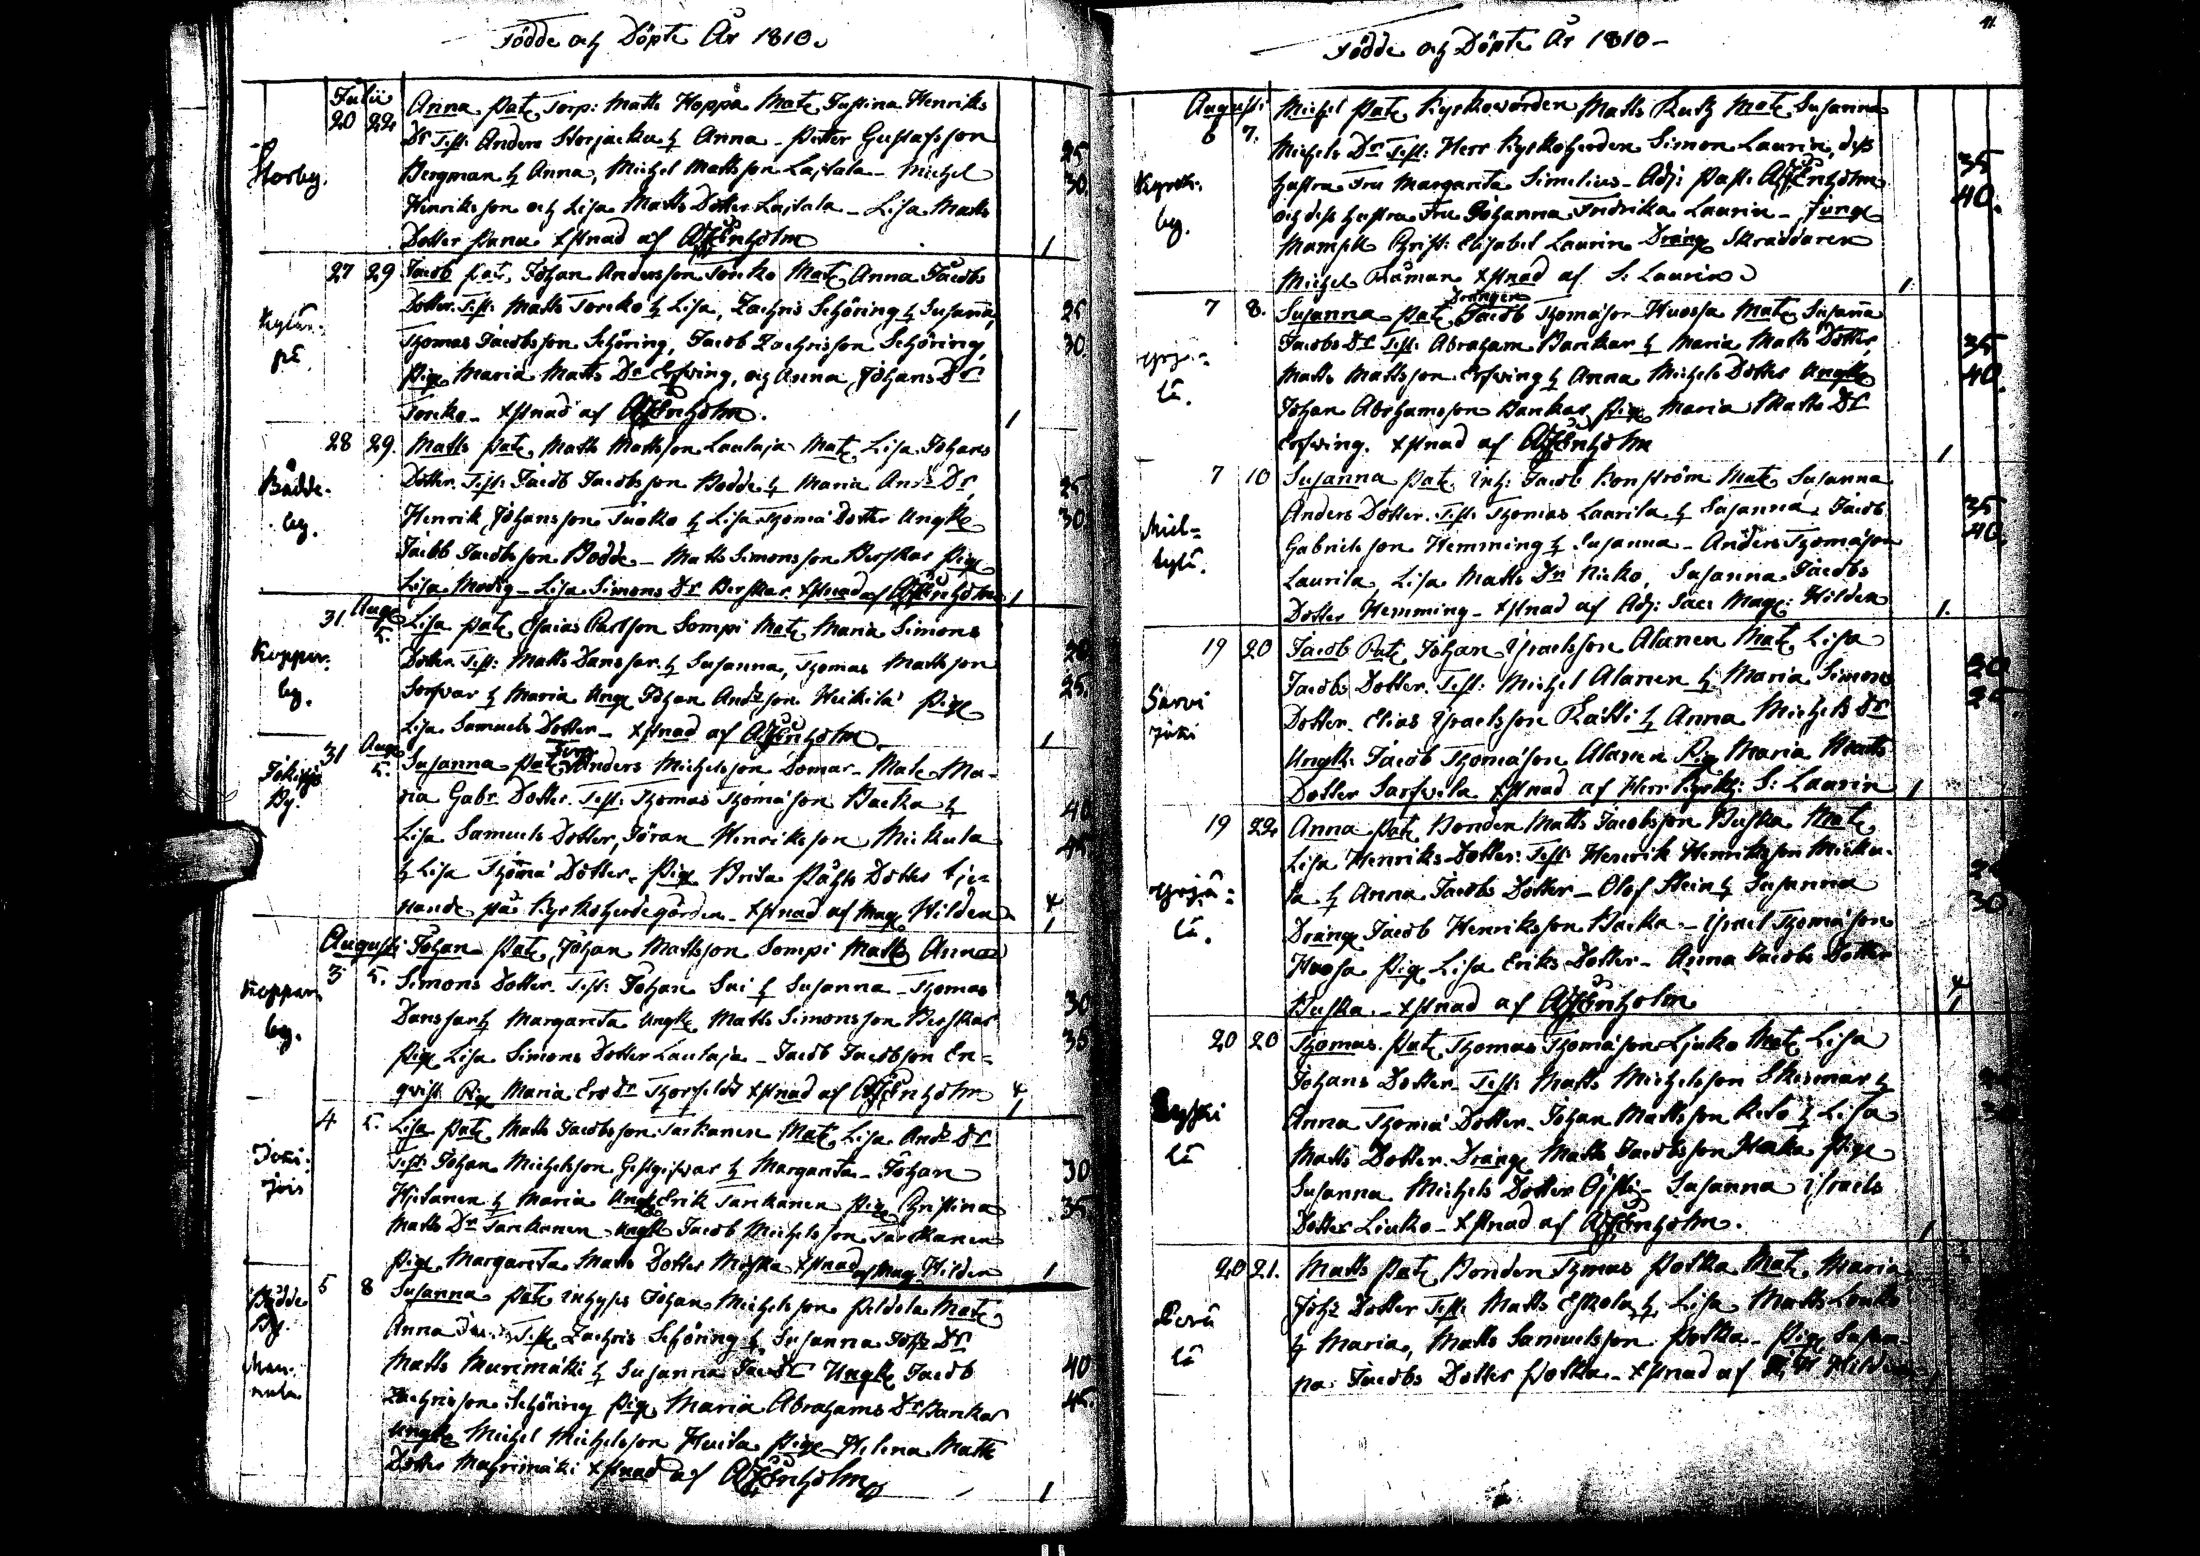 Födde och Döpte År 1810.
Julii
20 22
Storby.
Anna Pat. Torp: Matts Hoppa Mat. Justina Henriks
Dr Test: Anders Storjacku & Anna - Petter Gustafsson
Bergman & Anna, Michel Mattsson Lassala - Michel
Henriksson och Lisa Matts Dotter Lassala - Lisa Matts
Dotter Panu xstnad af Enholm
25
30
1
27 29
Jacob Pat. Johan Andersson Torcko Mat. Anna Jacobs
Dotter. Test: Matts Torcko & Lisa, Zachris Schöring & Susanna,
Thomas Jacobsson Schöring, Jacob Zachrisson Schöring,
Pig. Maria Matts Dr Erfving, och Anna Johans Dr
Torcko - xstnad af Enholm.
25
30
1
28 29.
Bådde-
by.
Matts Pat. Matts Mattsson Laulaja Mat. Lisa Johans
Dotter. Test: Jacob Jacobsson Bodde & Maria And: Dr,
Henrik Johansson & Lisa Thoma Dotter Ungk.
Jacob Jacobsson Bodde - Matts Simonsson Berskar Pige
Lisa Modig - Lisa Simons Dr Berskar. xstnad af Enholm
25
30
1
31. Aug. 5.
Koppar-
by.
Lisa Pat. Esaias Carlsson Sompi Mat. Maria Simons
Dotter. Test: Matts Dansar & Susanna, Thomas Mattsson
Sorfvar & Maria Ung. Johan Andsson Heikilä Pige
Lisa Samuels Dotter - xstnad af Enholm
20
25
1
31 Aug. 5.
By.
Susanna Pat. Anders Michelsson Domar - Mat. Ma-
ria Gabr. Dotter. Test: Thomas Thomasson Backa &
Lisa Samuels Dotter, Jöran Henriksson Mickula
& Lisa Thoma Dotter. Pig. Brita Påhls Dotter tje-
nande på Kyrkoherdegården - xstnad af Mag. Hilden
40
45
1
Augusti
3 5.
Koppar-
by.
Johan Pat. Johan Mattsson Sompi Matts Anna
Simons Dotter. Test: Johan Sui & Susanna - Thomas
Dansar & Margareta Ungk. Matts Simonsson Berskar
Pige Lisa Simons Dotter Laulaja - Jacob Jacobsson En-
qvist Pig. Maria Ers Dr Thorsfeldt xstnad af Enholm
30
35
1
4 5.
Lisa Pat. Matts Jacobsson Tarkanen Mat. Lisa And: Dr
Test: Johan Michelsson Gestgifvar & Margareta - Johan
Hietanen & Maria Ungk. Erik Tarkanen Pige Christina
Matts Dr Tarkanen Ungk. Jacob Michelsson Tarkanen
Pige Margareta Matts Dotter Miska xstnad af Mag. Hilden
30
35.
1
5 8
Bådde
By.
Susanna Pat. inhyses Johan Michelsson Peldola Mat.
Anna Test: Zachris Schöring & Susanna Joh: Dr
Matts Murimäki & Susanna Jacobs Dr Ungk. Jacob
Zachrisson Schöring Pig. Maria Abrahams Dr Bankar
Ungk. Michel Michelsson Huila Pige Helena Matts
Dotter Murimäki xstnad af Enholm
40
45.
1
41.
Födde och Döpte År 1810 -
Augusti
6 7.
Kyrck-
by.
Michel Pat. Kyrkovärden Matts Rutz Mat. Susanna
Michels Dr Test: Herr Kyrkoherden Simon Laurin, dess
hustru Fru Margareta Simelius - Adj: Past: Enholm
och dess hustru Fru Johanna Fredrika Laurin - Jungf.
Mamsell Christ: Elisabet Laurin Dräng Skräddaren
Michel Råman xstnad af S: Laurin
35
40.
1.
7 8.
Susanna Pat. Drängen Jacob Thomasson Huossa Mat. Susanna
Jacobs Dr Test: Abraham Bankar & Maria Matts Dotter,
Matts Mattsson Erfving & Anna Michels Dotter Ungk.
Johan Abrahamsson Bankar Pig. Maria Matts Dr
Erfving. xstnad af Enholm
35
40
1
7 10
Miel-
kylä.
Susanna Pat. Inh: Jacob Konström Mat. Susanna
Anders Dotter. Test: Thomas Laurila & Susanna, Jacob
Gabrielsson Hemming & Susanna - Anders Thomasson
Laurila Lisa Matts Dr Nicko, Susanna Jacobs
Dotter Hemming - xstnad af Adj: Sac: Mag: Hilden
35
40.
1.
19 20
Sarvi
joki
Jacob Pat. Johan Israelsson Alanen Mat. Lisa
Jacobs Dotter. Test: Michel Alanen & Maria Simons
Dotter. Elias Israelsson Rätti & Anna Michels Dr
Ungk. Jacob Thomasson Alanen Pig. Maria Matts
Dotter Sarfvela xstnad af Herr Kyrkh: S: Laurin
20
25
1
19 22
Anna Pat. Bonden Matts Jacobsson Puska Mat.
Lisa Henriks Dotter: Test: Henrik Henriksson Micku-
la & Anna Jacobs Dotter - Olof Stein & Susanna
Dräng Jacob Henriksson Backa - Israel Thomasson
Huossa Pig. Lisa Eriks Dotter - Anna Jacobs Dotter
Puska. - xstnad af Enholm
30
1
20 20
Thomas. Pat. Thomas Thomasson Liuko Mat. Lisa
Johans Dotter - Test: Matts Michelsson Skismar &
Anna Thoma Dotter. Johan Mattsson Keto & Lisa
Matts Dotter. Dräng Matts Jacobsson Haka Pige
Susanna Michels Dotter - Susanna Israels
Dotter Liuko - xstnad af Enholm.
1
20 21.
Matts Pat. Bonden Thomas Potka Mat. Maria
Joh: Dotter Test: Matts Eskola & Lisa Matts Louko
& Maria, Matts Samuelsson Potka - Pig. Susan-
na Jacobs Dotter Potka - xstnad af Hilden